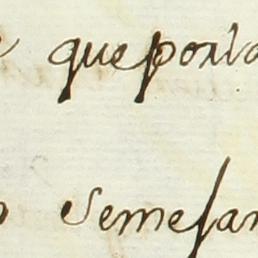 que porla
o semejan